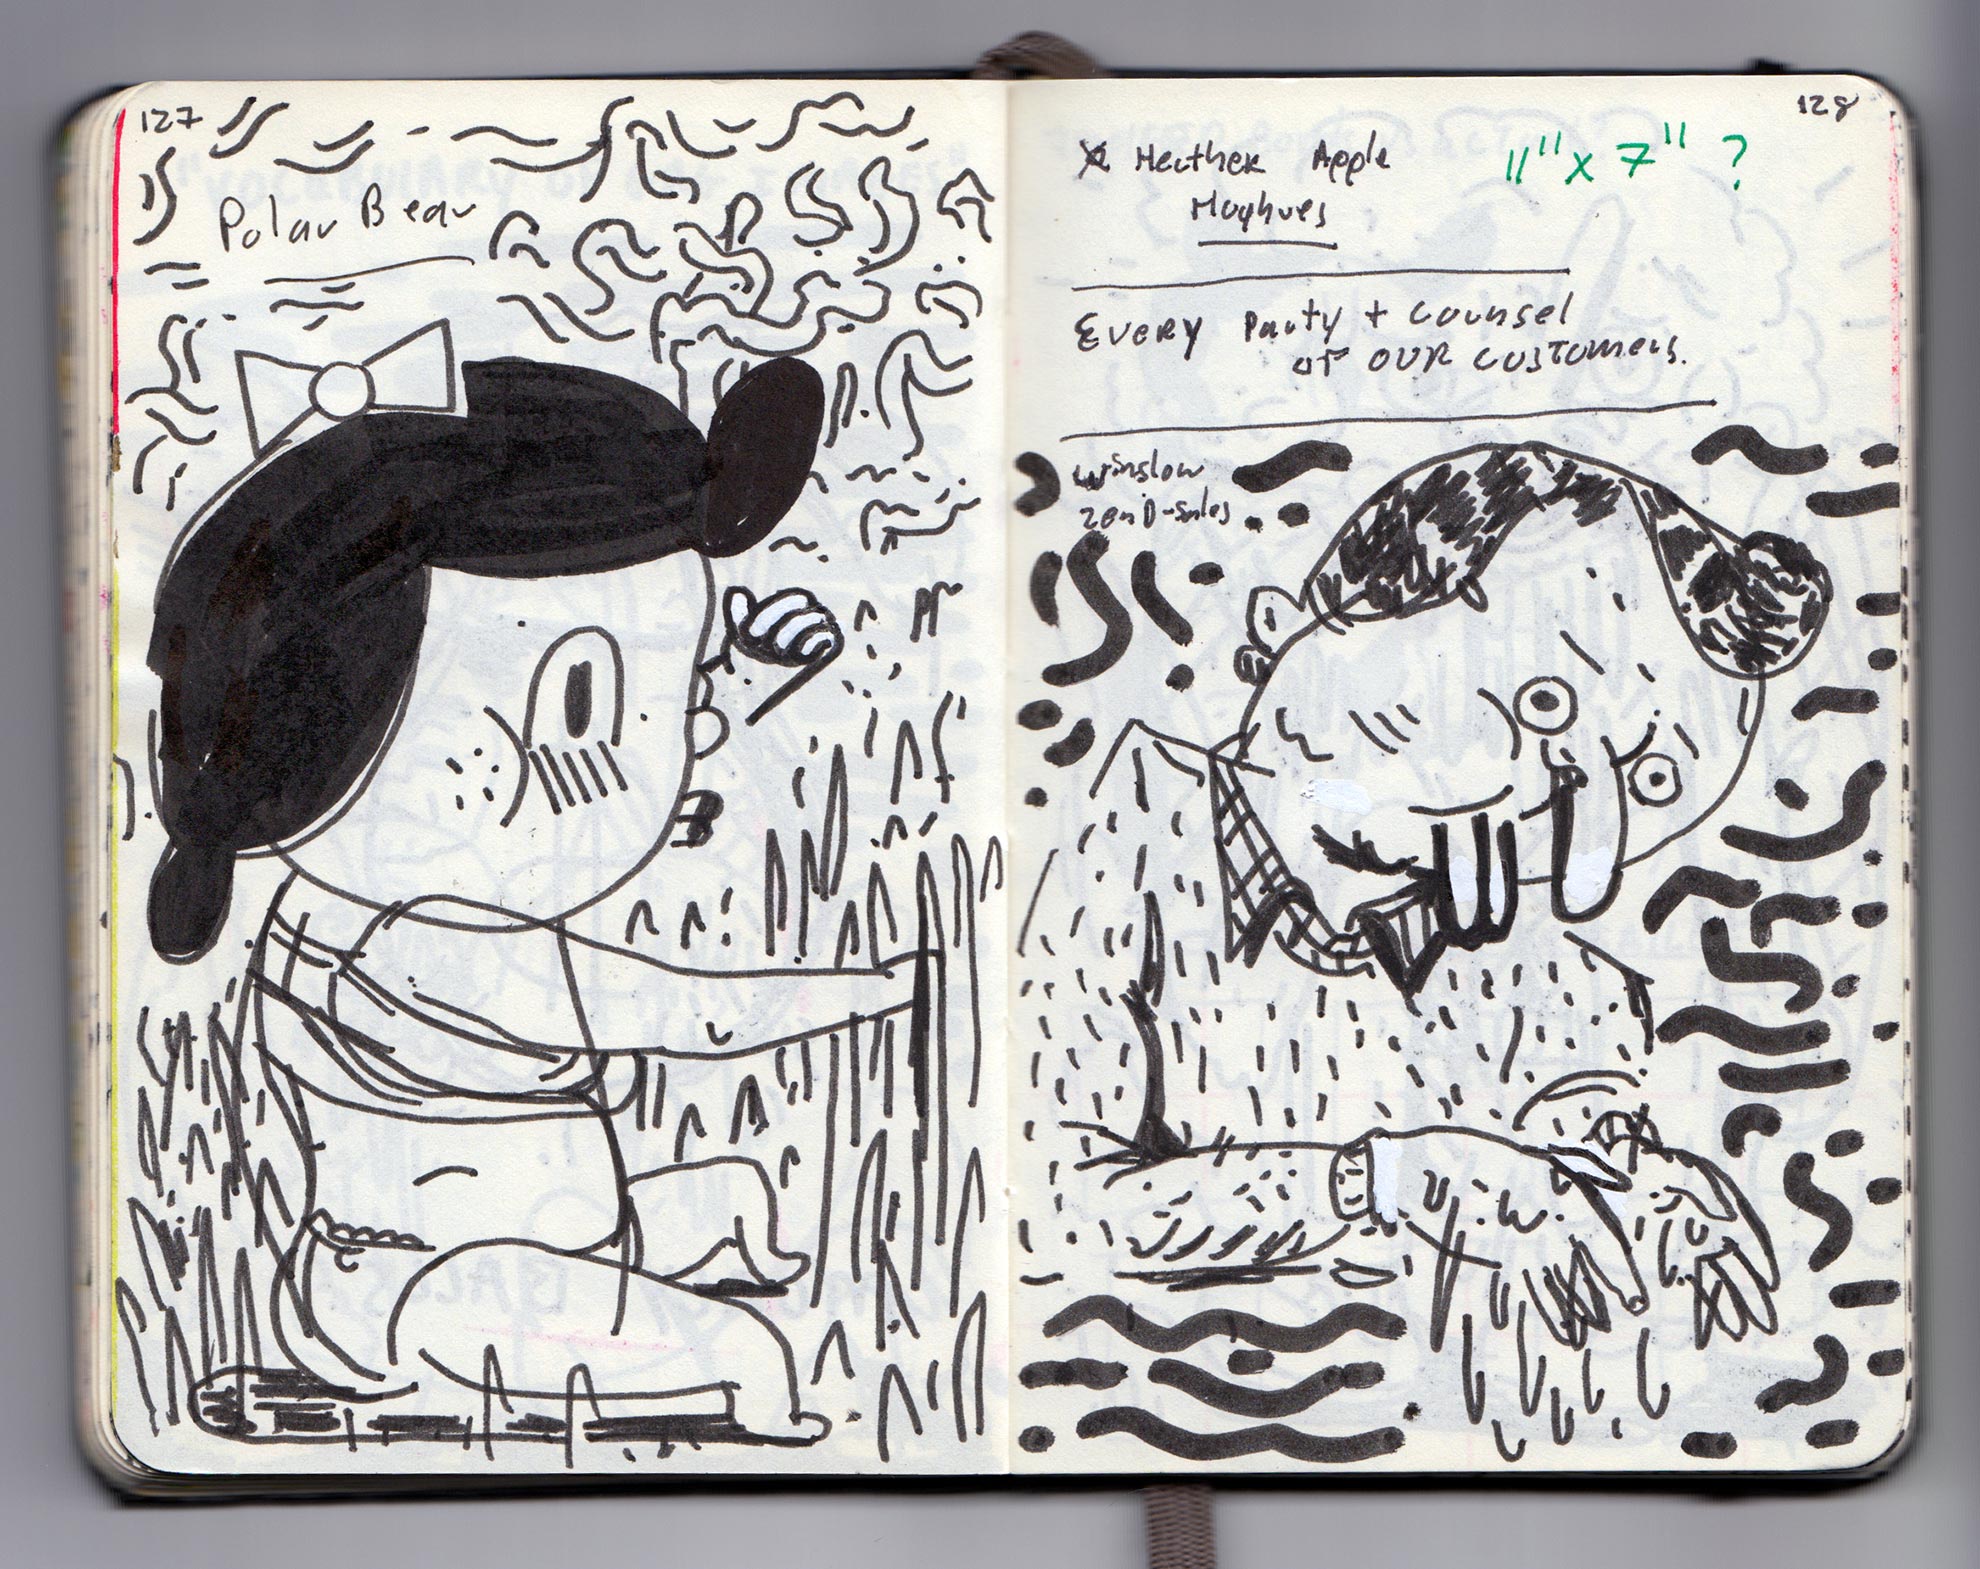 127
Polar Bear
128
Heather Apple
11" x 7" ?
Every Party + counsel
of our customers.
Winslow